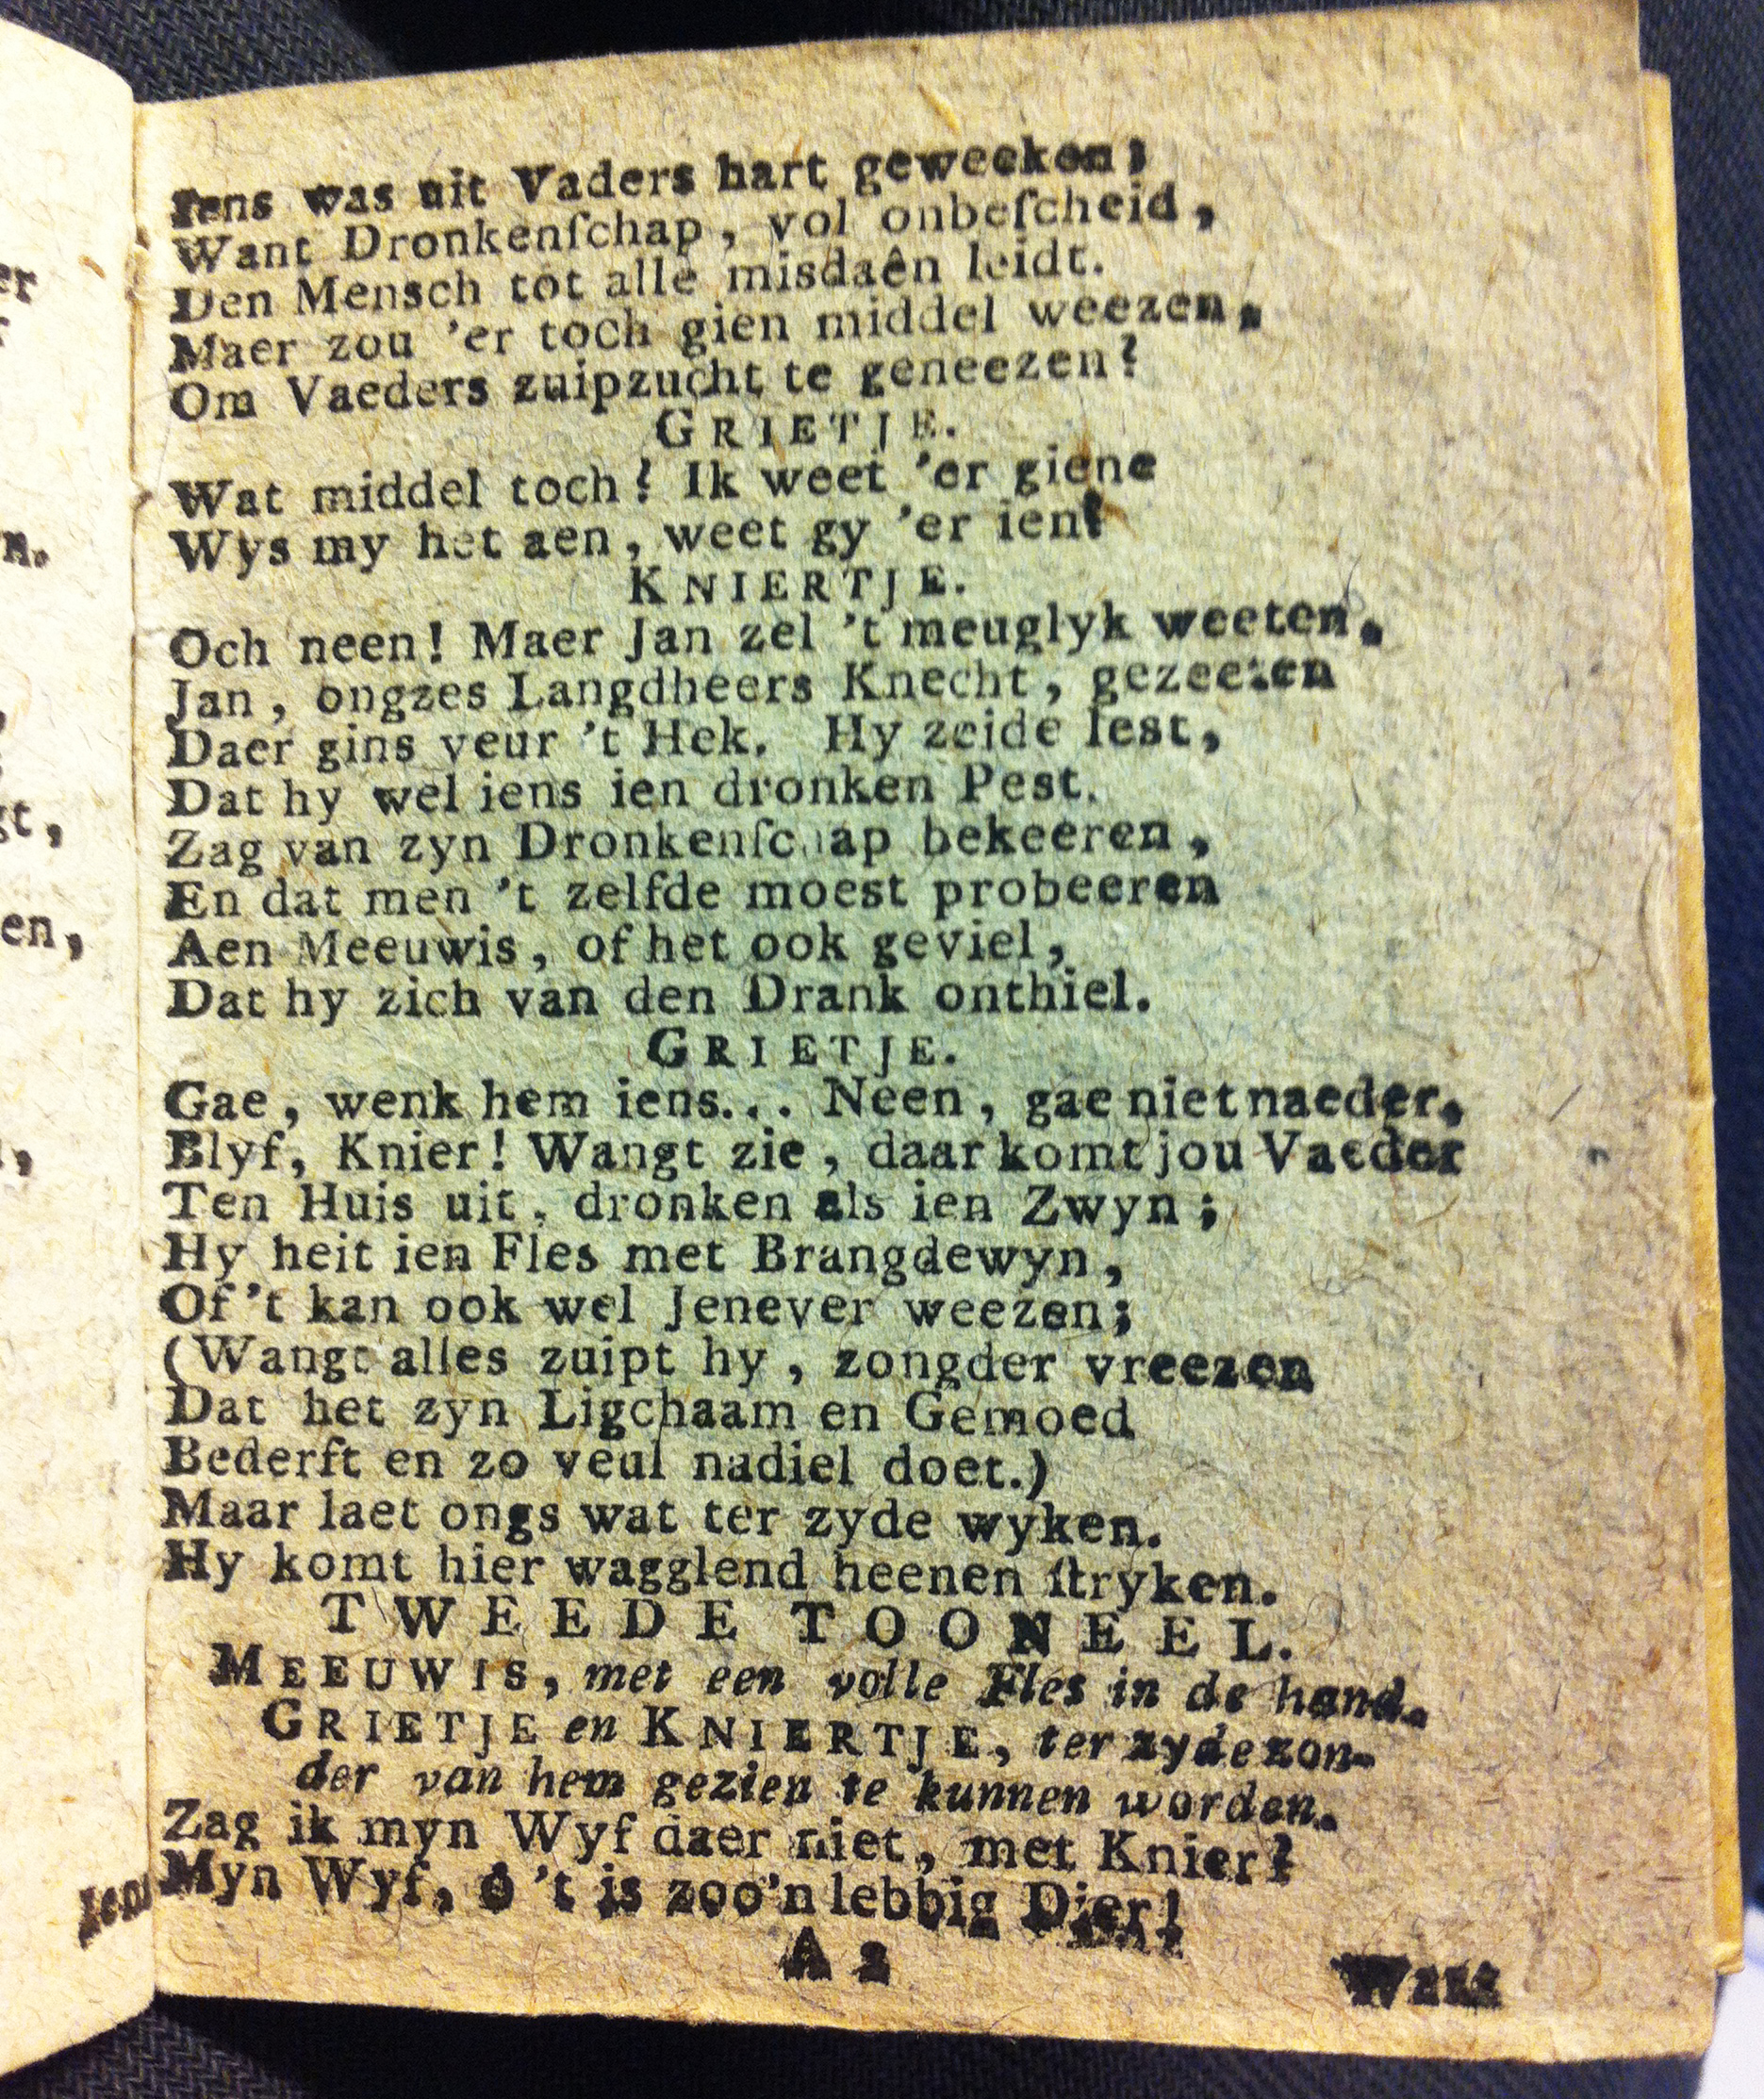 Iens was uit Vaders hart geweeken;
Want Dronkenſchap, vol onbeſcheid,
Den Mensch tot alle misdaên leidt.
Maer zou 'er toch gien middel weezen,
Om Vaeders zuipzucht te geneezen?
GRIETJE.
Wat middel toch? Ik weet 'er giene
Wys my het aen, weet gy 'er ien!
KNIERTJE.
Och neen! Maer Jan zel 't meuglyk weeten,
Jan, ongzes Langdheers Knecht, gezeeten
Daer gins veur 't Hek. Hy zeide lest,
Dat hy wel iens ien dronken Pest.
Zag van zyn Dronkenſchap bekeeren,
En dat men 't zelfde moest probeeren
Aen Meeuwis, of het ook geviel,
Dat hy zich van den Drank onthiel.
GRIETJE.
Gae, wenk hem iens... Neen, gae niet naeder,
Blyf, Knier! Wangt zie, daar komt jou Vaeder
Ten Huis uit, dronken als ien Zwyn;
Hy heit ien Fles met Brangdewyn,
Of 't kan ook wel Jenever weezen;
(Wangt alles zuipt hy, zongder vreezen
Dat het zyn Ligchaam en Gemoed
Bederft en zo veul nadiel doet.)
Maar laet ongs wat ter zyde wyken.
Hy komt hier wagglend heenen ſtryken.
TWEEDE TOONEEL.
MEEUWIS, met een volle Fles in de hand.
GRIETJE en KNIERTJE, ter zyde zon-
der van hem gezien te kunnen worden.
Zag ik myn Wyf daer niet, met Knier?
Myn Wyf, ô 't is zoo'n lebbig Dier!
A 2
Want
er
n.
gt,
en,
Iens